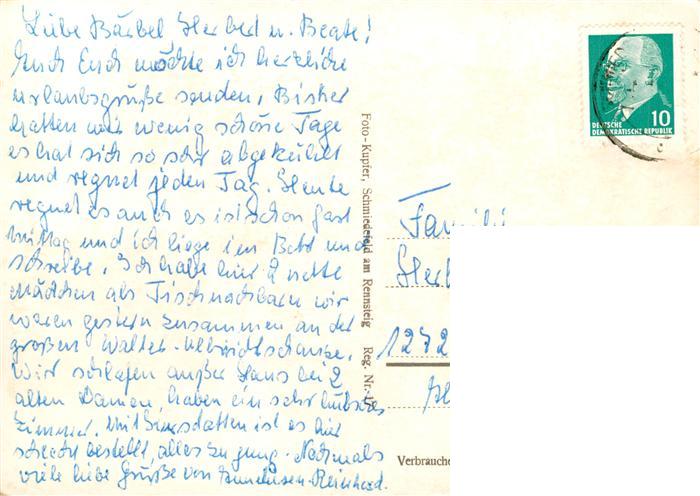 Liebe Bärbel Herbert u. Beate!
Auch Euch möchte ich herzliche
Urlaubsgrüße senden, Bisher
hatten wir wenig schöne Tage
es hat sich so sehr abgekühlt
und regnet jeden Tag. Heute
regnet es auch es ist schon fast
Mittag und ich liege im Bett und
schreibe. Ich habe hier 2 nette
Mädchen als Tischnachbarn wir
waren gestern zusammen an der
großen Walter-Ulbrichtschanze.
Wir schlafen außer Haus bei 2
alten Damen, haben ein sehr hübsches
Zimmer. Mit ist es hier
schlecht bestellt, alles zu jung. Nochmals
viele liebe Grüße von Reinhard.
Foto-Kupfer, Schmiedefeld am Rennsteig Reg. Nr.
10
DEUTSCHE
DEMOKRATISCHE REPUBLIK
Famili
Herb
1272
Verbrauche